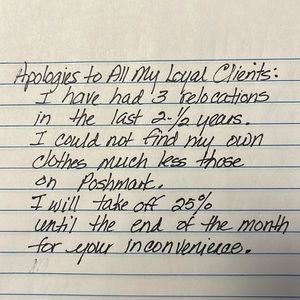 Apologies to All My Loyal Clients:
I have had 3 relocations
in the last 2-½ years.
I could not find my own
clothes much less those
on Poshmark.
I will take off 25%
until the end of the month
for your inconvenience.